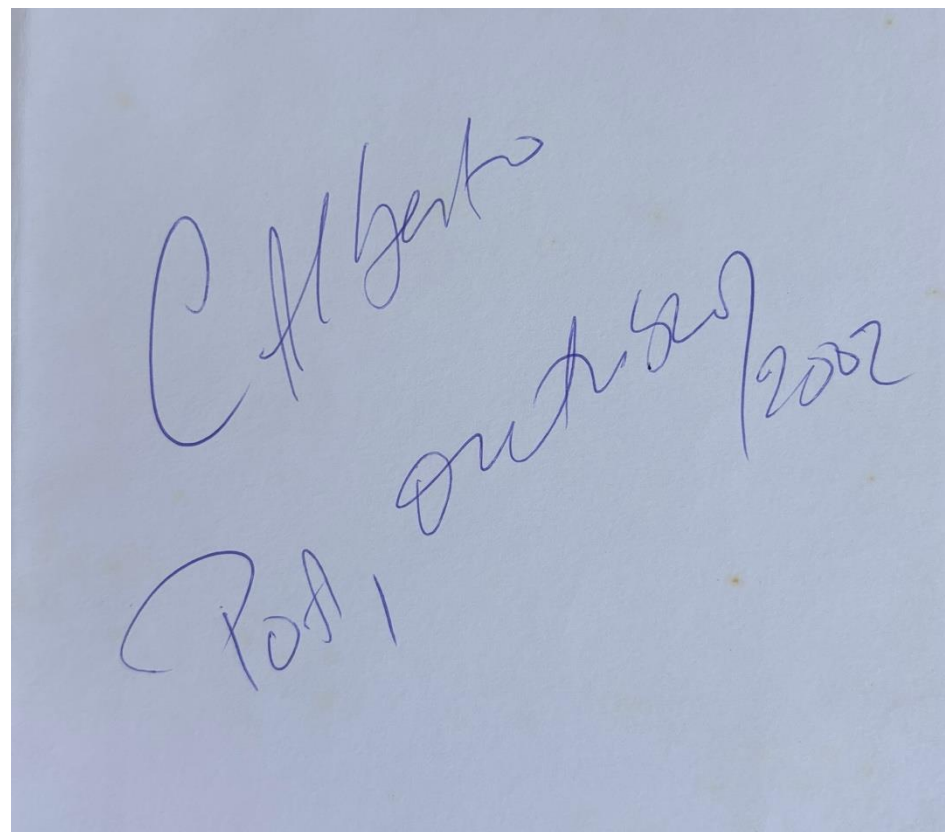 C Alberto
PoA, outubro/2002